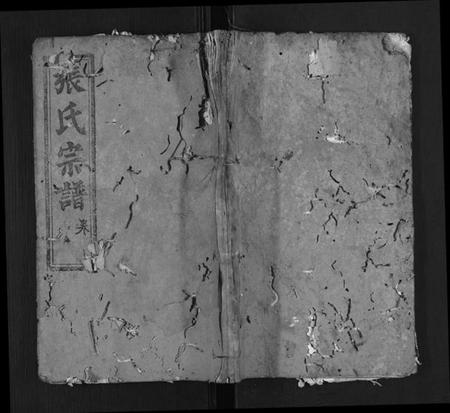 張氏宗譜 卷